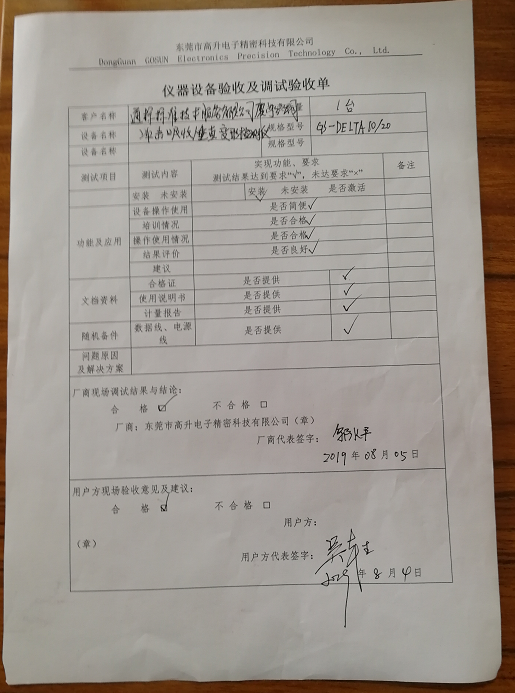 东莞市高升电子精密科技有限公司
DongGuan GOSUN Electronics Precision Technology Co., Ltd.
仪器设备验收及调试验收单
客户名称 通标标准技术服务有限公司厦门分公司 量 1台
设备名称 冲击吸收/垂直变形检测仪 规格型号 GS-DELTA10/20
设备名称 规格型号
测试项目 测试内容 实现功能、要求 备注
测试结果达到要求“√”，未达要求“×”
功能及应用
安装 未安装 安装√ 未安装 是否激活
设备操作使用 是否简便√
培训情况 是否合格√
操作使用情况 是否合格√
结果评价 是否良好√
建议
文档资料
合格证 是否提供 √
使用说明书 是否提供 √
计量报告 是否提供 √
随机备件 数据线、电源线 是否提供 √
问题原因及解决方案
厂商现场调试结果与结论:
合 格☑ 不合格□
厂商: 东莞市高升电子精密科技有限公司（章）
厂商代表签字:
2019年08月05日
用户方现场验收意见及建议:
合 格☑ 不合格□
用户方:
（章）
用户方代表签字:
2019年8月4日